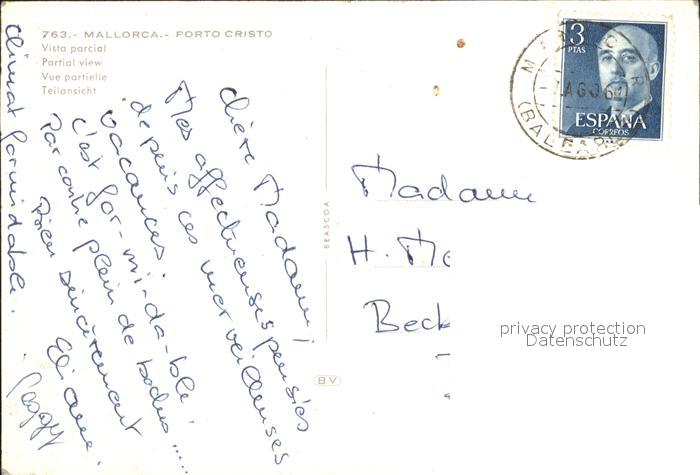 763.- MALLORCA.- PORTO CRISTO
Vista parcial
Partial view
Vue partielle
Teilansicht
Chère Madame,
Mes affectueuses pensées
depuis ces merveilleuses
vacances.
c'est for-mi-da-ble.
Par contre plein de
Bien sincèrement
Eliane.
climat formidable.
BEASCOA
BV
3
PTAS
ESPAÑA
CORREOS
AGO 6
(BALEAR
Madame
H. Me
Beck
privacy protection
Datenschutz